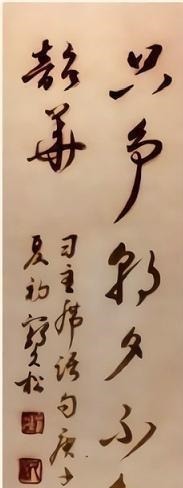 只争朝夕不
韶華
习主席语句庚子
夏初
松